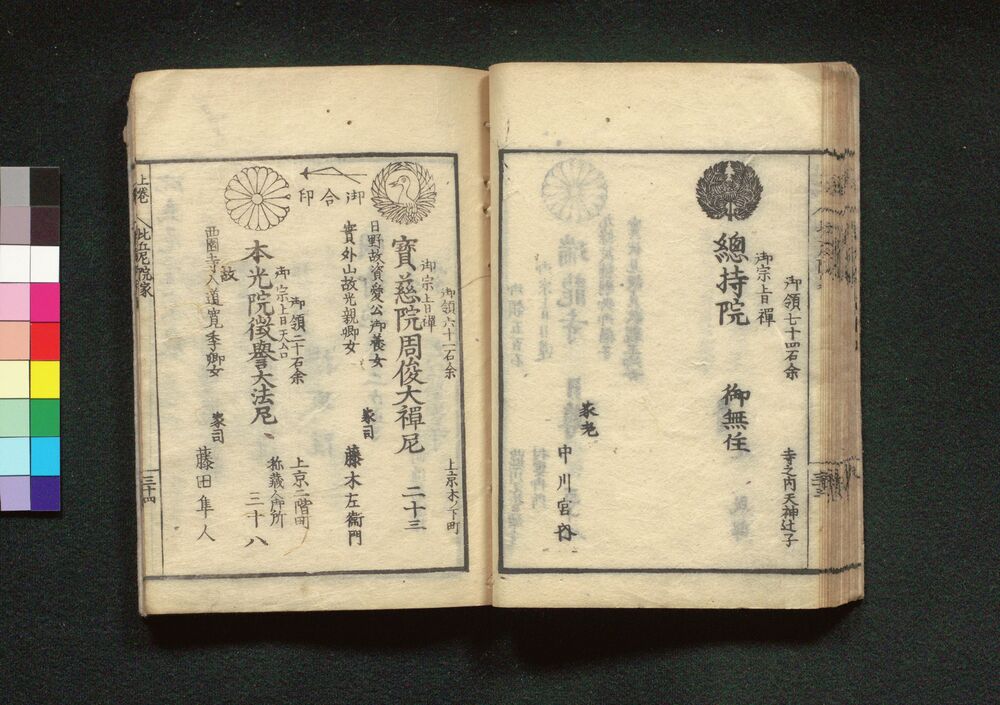 御領七十四石余
御宗旨禪
總持院
御無住
寺之内天神辻子
家老
中川宮内
御領六十一石余
御宗旨禪
寶慈院周俊大禪尼
二十三
上京木ノ下町
日野故資愛公御養女
實外山故光親卿女
家司
藤木左衞門
御合印
御領二十石余
御宗旨天台
本光院徴譽大法尼
三十八
上京二階町
称蔵人御所
故
西園寺入道寛季卿女
家司
藤田隼人
上巻
比丘尼院家
三十四